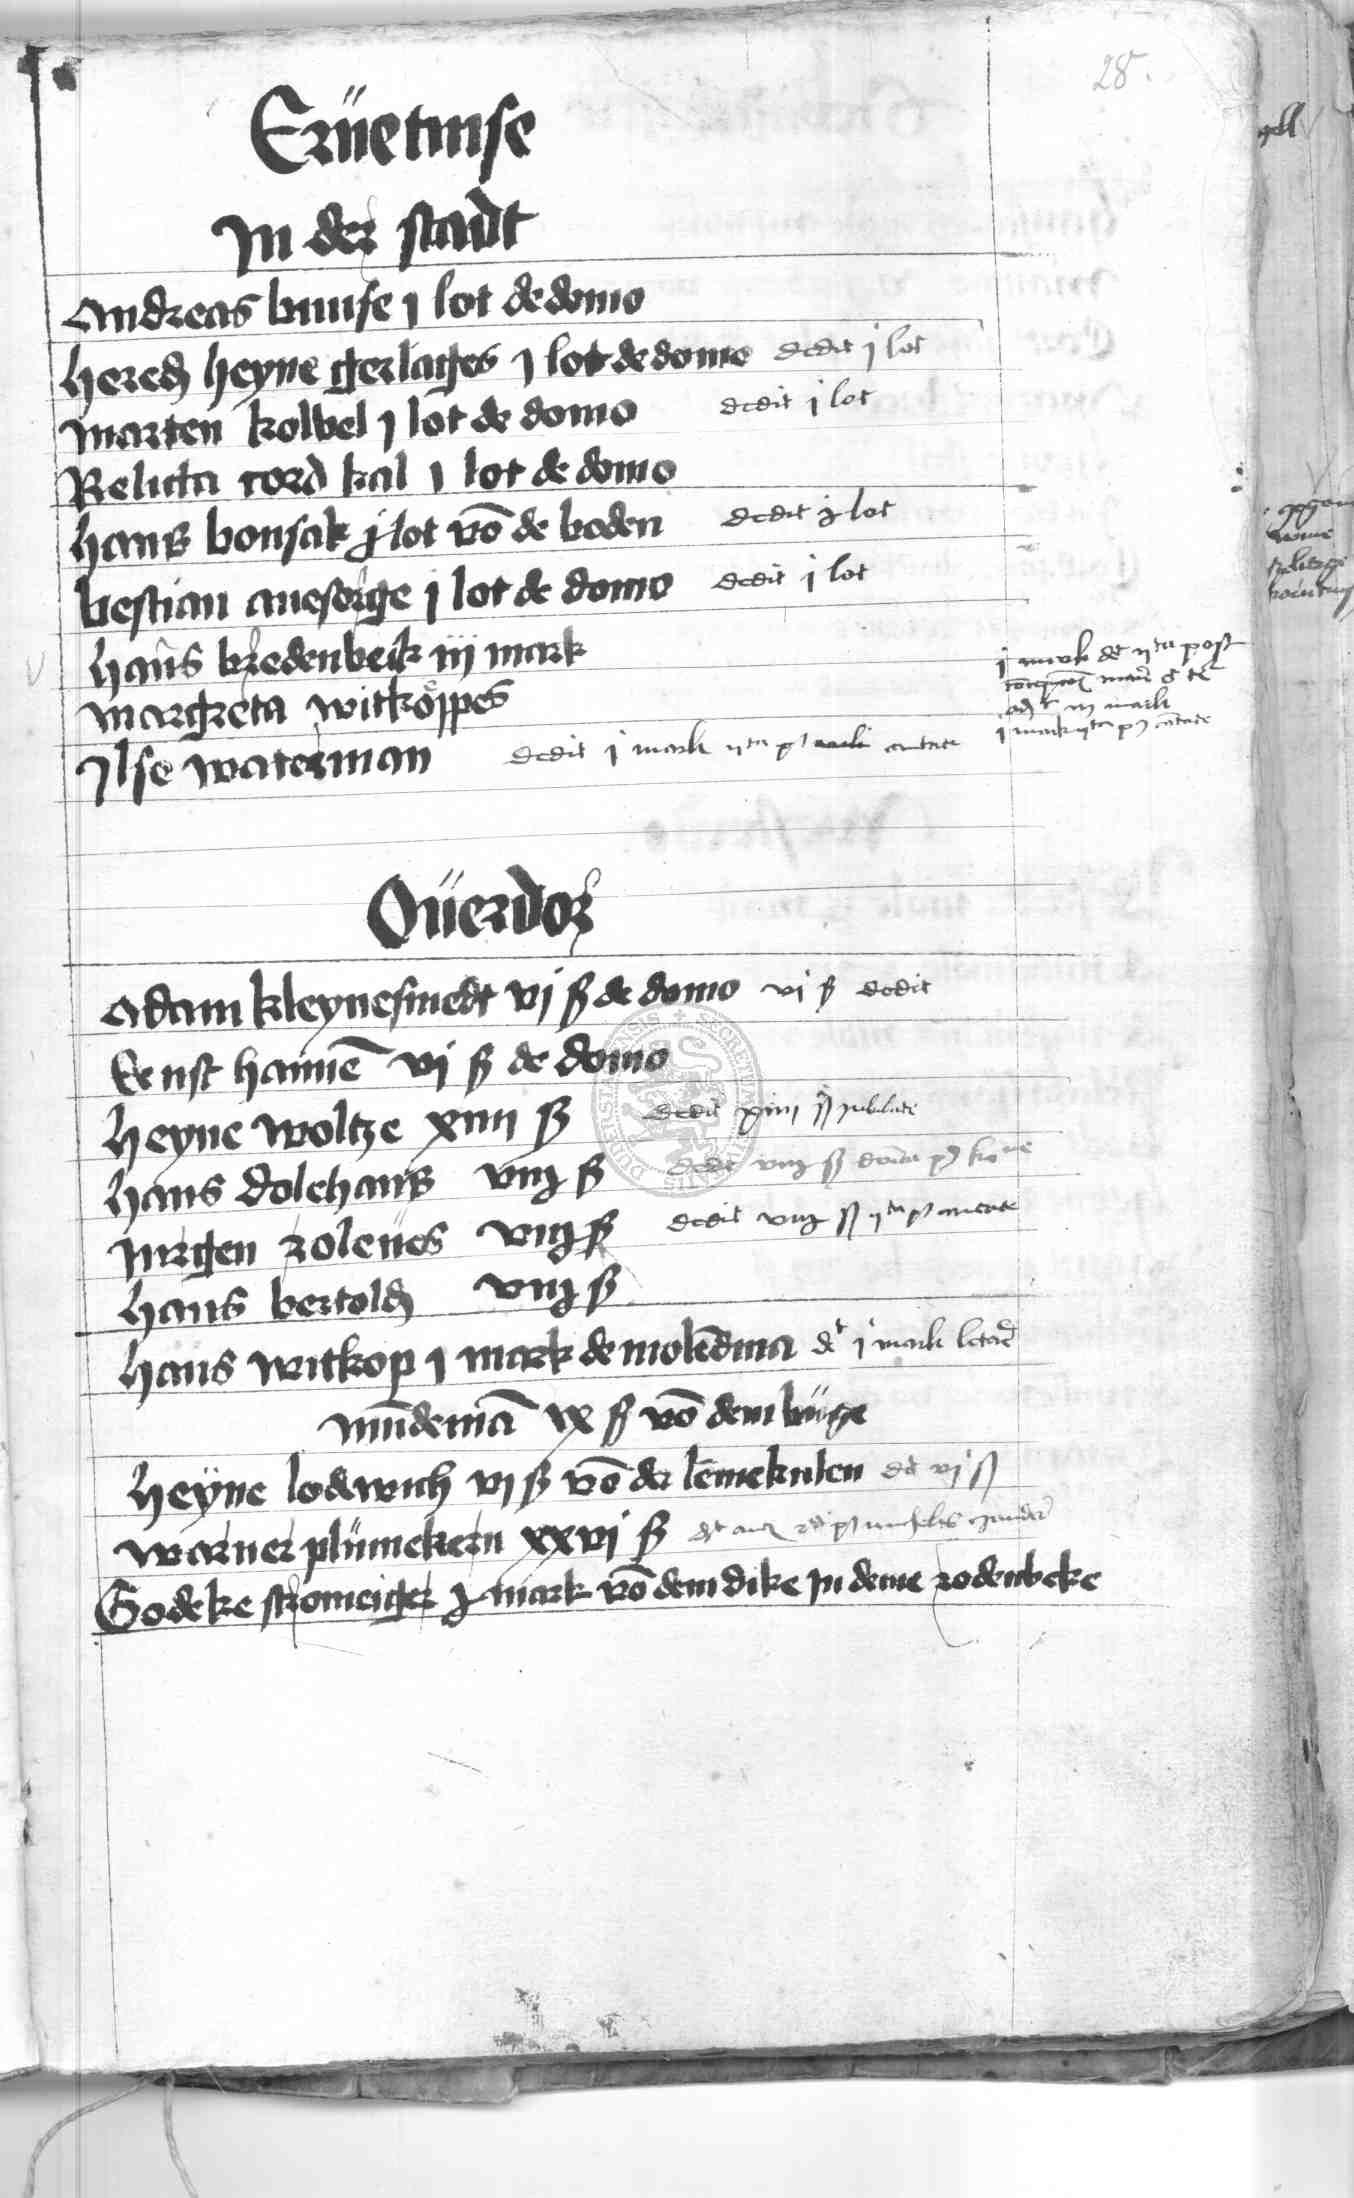 28.
Erüetinse
In der stadt
Andreas buuse j lot de domo
hered heyne gerlages j lot de domo dedit j lot
marten kolvel j lot de domo dedit j lot
Relicta cord kal j lot de domo
hanß bonsak j lot vō de boden dedit j lot
bestian anesorge j lot de domo dedit j lot
hans bredenbeck iij mark
margreta witkőppes
Ilse waterman dedit j mark
j mark post
iij mark
j mark
Öüerdor
Adam kleynesmedt vj ß de domo vj ß dedit
Ernst hainiē vj ß de domo
heyne woltze xiiij ß dedit xiiij ß jubilate
hans dolehanß viij ß dedit viij ß
jurgen roleües viij ß dedit viij ß
hans bertold viij ß
hans witkop j mark de molēdina dt j mark letare
mūdemā ix ß vō dem
heyne lodewich vj ß vō der lemekulen dt vj ß
warner plümekern xxvj ß
Godeke stromeiger j mark vō dem dike in deme rodenbeke
SECRETUM DUDERSTADENSIS